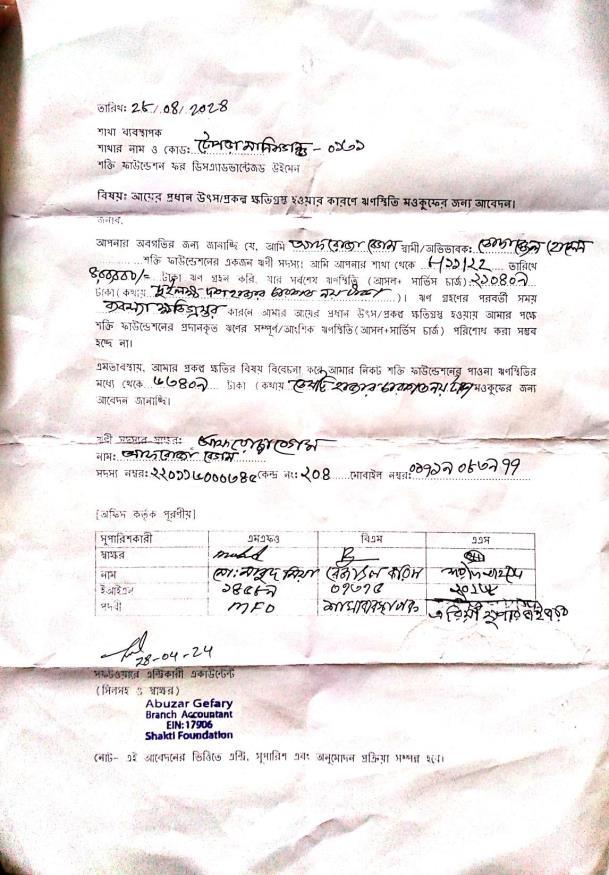 তারিখ: ২৮/০৪/২০২৪
শাখা ব্যবস্থাপক
শাখার নাম ও কোড: টেপড়া মানিকগঞ্জ - ০১৬১
শক্তি ফাউন্ডেশন ফর ডিসএ্যাডভান্টেজড উইমেন
বিষয়: আয়ের প্রধান উৎস/প্রকল্প ক্ষতিগ্রস্থ হওয়ার কারণে ঋণস্থিতি মওকুফের জন্য আবেদন।
জনাব,
আপনার অবগতির জন্য জানাচ্ছি যে, আমি আফরোজা বেগম স্বামী/অভিভাবক: হোসেন
শক্তি ফাউন্ডেশনের একজন ঋণী সদস্য। আমি আপনার শাখা থেকে ৮/১১/২২ তারিখে
টাকা ঋণ গ্রহন করি, যার সর্বশেষ ঋণস্থিতি (আসল+ সার্ভিস চার্জ) ২১০৪০৯
টাকা (কথায় দুইলক্ষ দশ হাজার চারশত নয় টাকা )। ঋণ গ্রহণের পরবর্তী সময়
ব্যবসা ক্ষতিগ্রস্থ কারনে আমার আয়ের প্রধান উৎস/প্রকল্প ক্ষতিগ্রস্থ হওয়ায় আমার পক্ষে
শক্তি ফাউন্ডেশনের প্রদানকৃত ঋণের সম্পূর্ণ/আংশিক ঋণস্থিতি(আসল+সার্ভিস চার্জ) পরিশোধ করা সম্ভব
হচ্ছে না।
এমতাবস্থায়, আমার প্রকল্প ক্ষতির বিষয় বিবেচনা করে আমার নিকট শক্তি ফাউন্ডেশনের পাওনা ঋণস্থিতির
মধ্যে থেকে ৬৩৪০৯ টাকা (কথায় তেষট্টি হাজার চারশত নয় টাকা মওকুফের জন্য
আবেদন জানাচ্ছি।
ঋণী সদস্যের স্বাক্ষর: আফরোজা বেগম
নাম: আফরোজা বেগম
সদস্য নম্বর: কেন্দ্র নং: ২০৪ মোবাইল নম্বর:
[অফিস কর্তৃক পূরণীয়]
সুপারিশকারী এমএফও বিএম এএস
স্বাক্ষর
নাম মো: মাসুদ মিয়া রেজাউল করিম
ইআইএন
পদবী MFO শাখাব্যবস্থাপক এরিয়া সুপারভাইজার
28-04-24
সফটওয়ারে এন্ট্রিকারী একাউন্টেন্ট
(সিলসহ ও স্বাক্ষর)
Abuzar Gefary
Branch Accountant
EIN:17906
Shakti Foundation
নোট- এই আবেদনের ভিত্তিতে এন্ট্রি, সুপারিশ এবং অনুমোদন প্রক্রিয়া সম্পন্ন হবে।